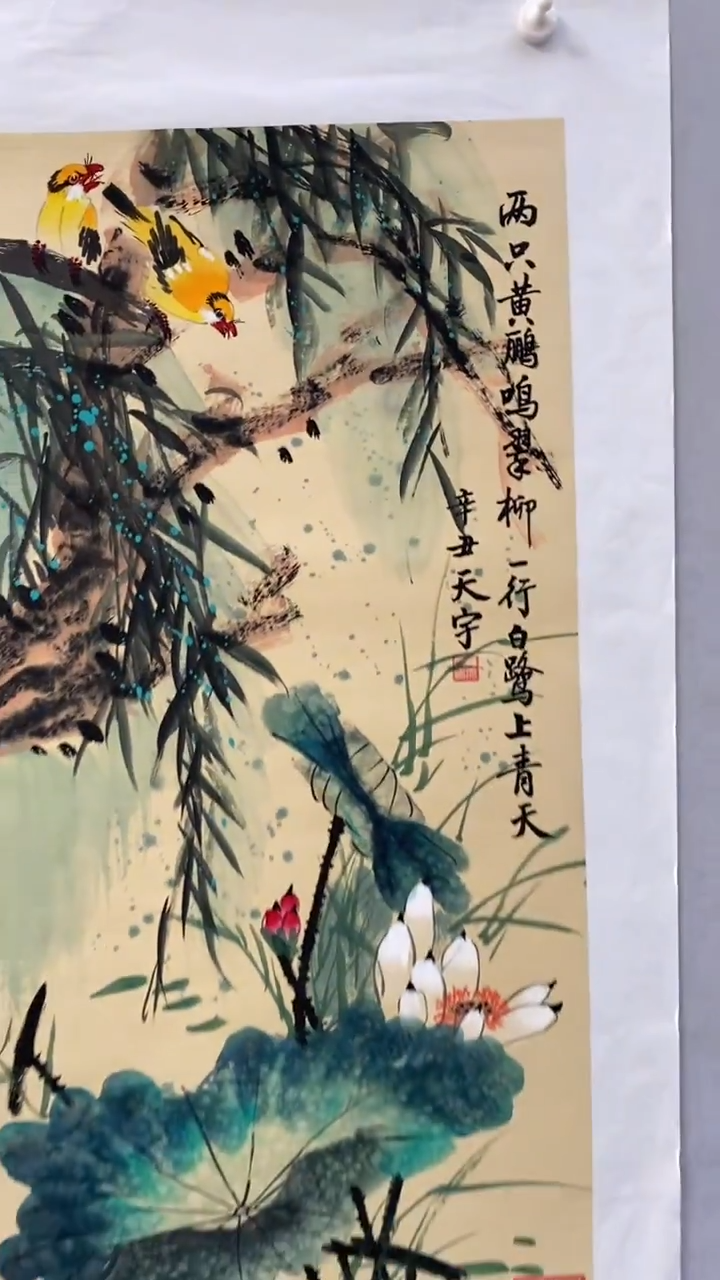 两只黄鹂鸣翠柳一行白鹭上青天
辛丑天宇